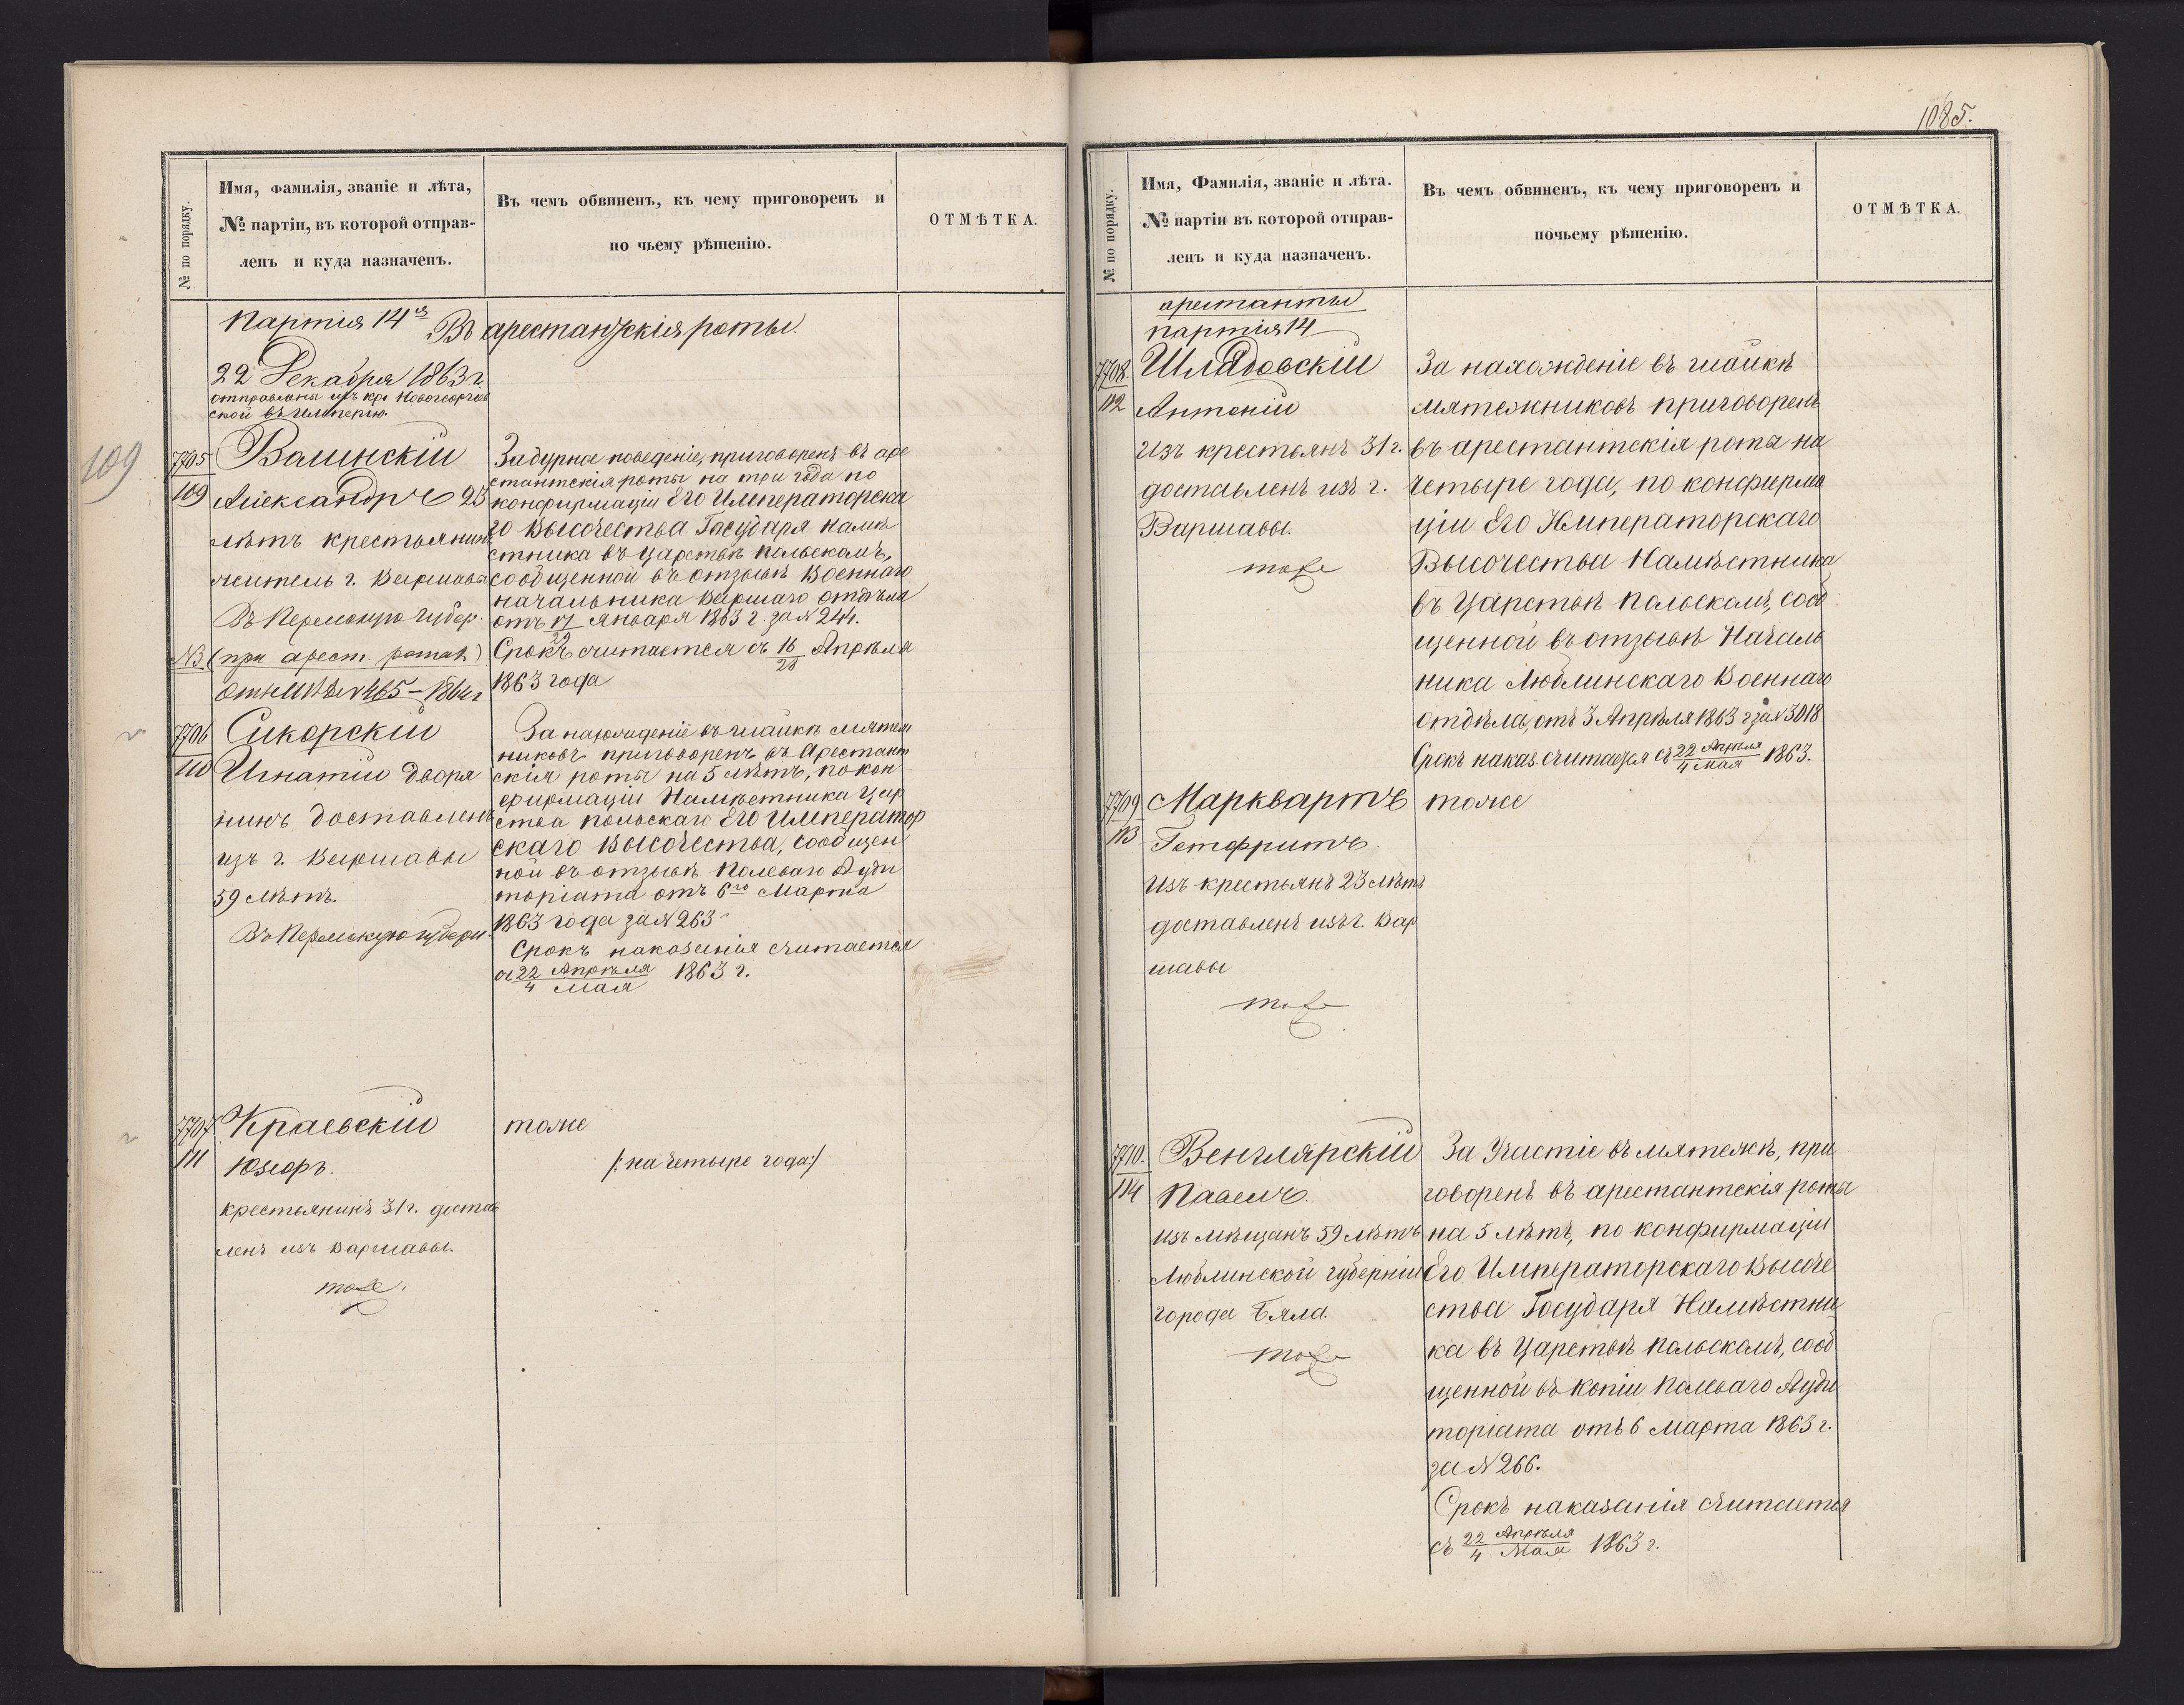 № по порядку.
Имя, фамилія, званіе и лѣта,
№ партіи, въ которой отправ-
ленъ и куда назначенъ.
Въ чемъ обвиненъ, къ чему приговоренъ и
по чьему рѣшенію.
ОТМѢТКА.
Партія 14я Въ арестантскія роты.
22 Декабря 1863 г.
отправлены изъ кр. Новогеоргіев
ской въ Имперію
109
7705
109
Валинскій
Александръ 25
лѣтъ крестьянинъ
житель г. Варшавы
Въ Пермскую губер.
NB (при арест. ротах)
1864 г
За дурное поведеніе, приговоренъ въ аре
стантскія роты на три года по
конфирмаціи Его Императорска
го Высочества Государя Намѣ
стника въ Царствѣ Польскомъ,
сообщенной въ отзывѣ Военнаго
начальника Варшаго отдѣла
отъ 17/29 Января 1863 г. за № 244.
Срокъ считается съ 16/28 Апрѣля
1863 года
7706
110
Сикорскій
Игнатій дворя
нинъ доставленъ
изъ г. Варшавы
59 лѣтъ.
Въ Пермскую губерн.
За нахожденіе въ шайкѣ мятеж
никовъ приговоренъ въ Арестант
скія роты на 5 лѣтъ, по кон
фирмаціи Намѣстника Цар
ства Польскаго Его Император
скаго Высочества, сообщен
ной въ отзывѣ Полеваго Ауди
торіата отъ 6го Марта
1863 года за № 263
Срокъ наказанія считается
съ 22 Апрѣля/4 Мая 1863 г.
7707
111
Краевскій
Юзефъ.
крестьянинъ 31 г. достав
ленъ изъ Варшавы.
тоже.
тоже
/: на четыре года :/
1085.
№ по порядку.
Имя, Фамилія, званіе и лѣта.
№ партіи въ которой отправ-
ленъ и куда назначенъ.
Въ чемъ обвиненъ, къ чему приговоренъ и
почьему рѣшенію.
ОТМѢТКА.
арестанты
партія 14
7708.
112
Шлядовскій
Антоній
изъ крестьянъ 31 г.
доставленъ изъ г.
Варшавы.
тоже
За нахожденіе въ шайкѣ
мятежниковъ приговоренъ
въ арестантскія роты на
четыре года, по конфирма
ціи Его Императорскаго
Высочества Намѣстника
въ Царствѣ Польскомъ, сооб
щенной въ отзывѣ Началь
ника Люблинскаго Военнаго
отдѣла, отъ 3 Апрѣля 1863 г за № 3018
Срокъ наказ. считается съ 22 Апрѣля/4 Мая 1863.
7709
113
Марквартъ
Готфритъ.
изъ крестьянъ 23 лѣтъ
доставленъ изъ г. Вар
шавы
тоже
тоже
7710.
114
Венглярскій
Павелъ.
изъ мѣщанъ 59 лѣтъ
Люблинской губерніи
города Бяла.
тоже
За Участіе въ мятежѣ, при
говоренъ въ арестантскія роты
на 5 лѣтъ, по конфирмаціи
Его Императорскаго Высоче
ства Государя Намѣстни
ка въ Царствѣ Польскомъ, сооб
щенной въ копіи Полеваго Ауди
торіата отъ 6 Марта 1863 г.
за № 266.
Срокъ наказанія считается
съ 22 Апрѣля/4 Мая 1863 г.